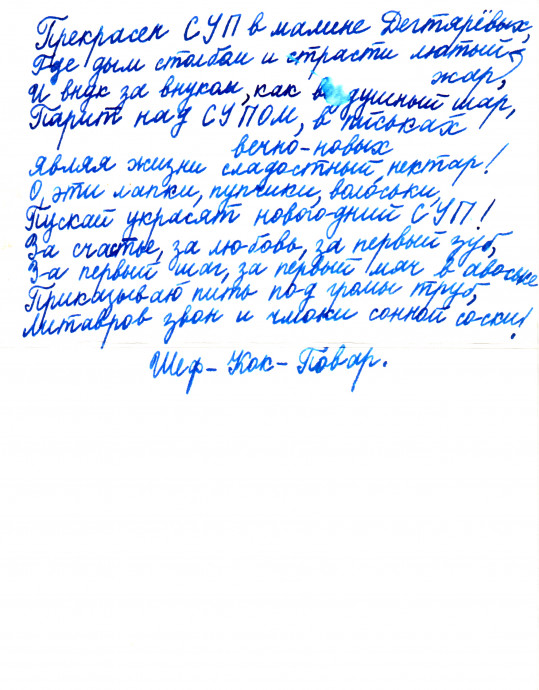 Прекрасен СУП в малине Дегтярёвых,
Где дым столбом и страсти лютый
жар,
И внук за внуком, как воздушный шар,
Парит над СУПОМ, в письках
вечно-новых
являя жизни сладостный нектар!
О, эти лапки, пупчики, волоськи,
Пускай украсят новогодний СУП!
За счастье, за любовь, за первый зуб,
За первый шаг, за первый мач в авоське
Приказываю пить под громы труб,
Литавров звон и чмоки сонной соски!
Шеф-Кок-Повар.